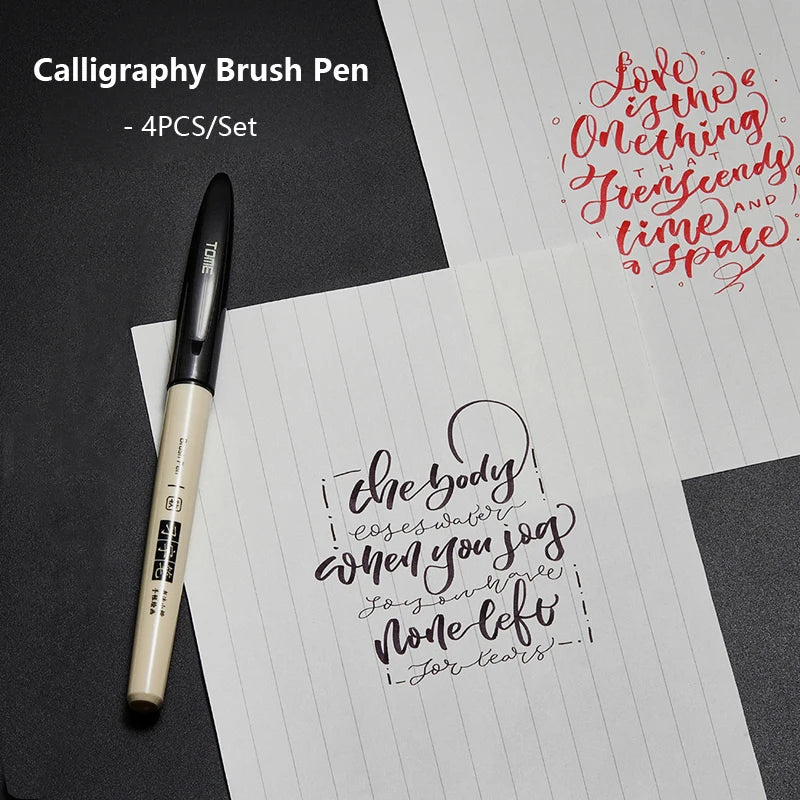 Calligraphy Brush Pen
- 4PCS/Set
Love
is the
One thing
THAT
Trenscends
time AND
space
TOME
Brush Pen
the body
loses water
when you jog
so you have
none left
for tears